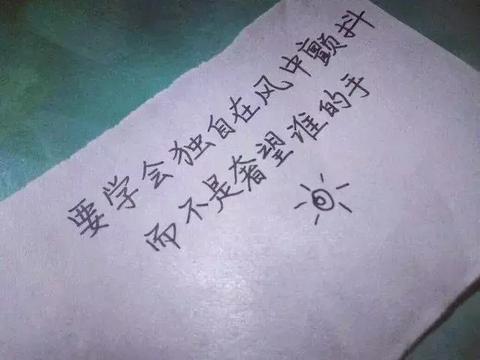 要学会独自在风中颤抖
而不是奢望谁的手